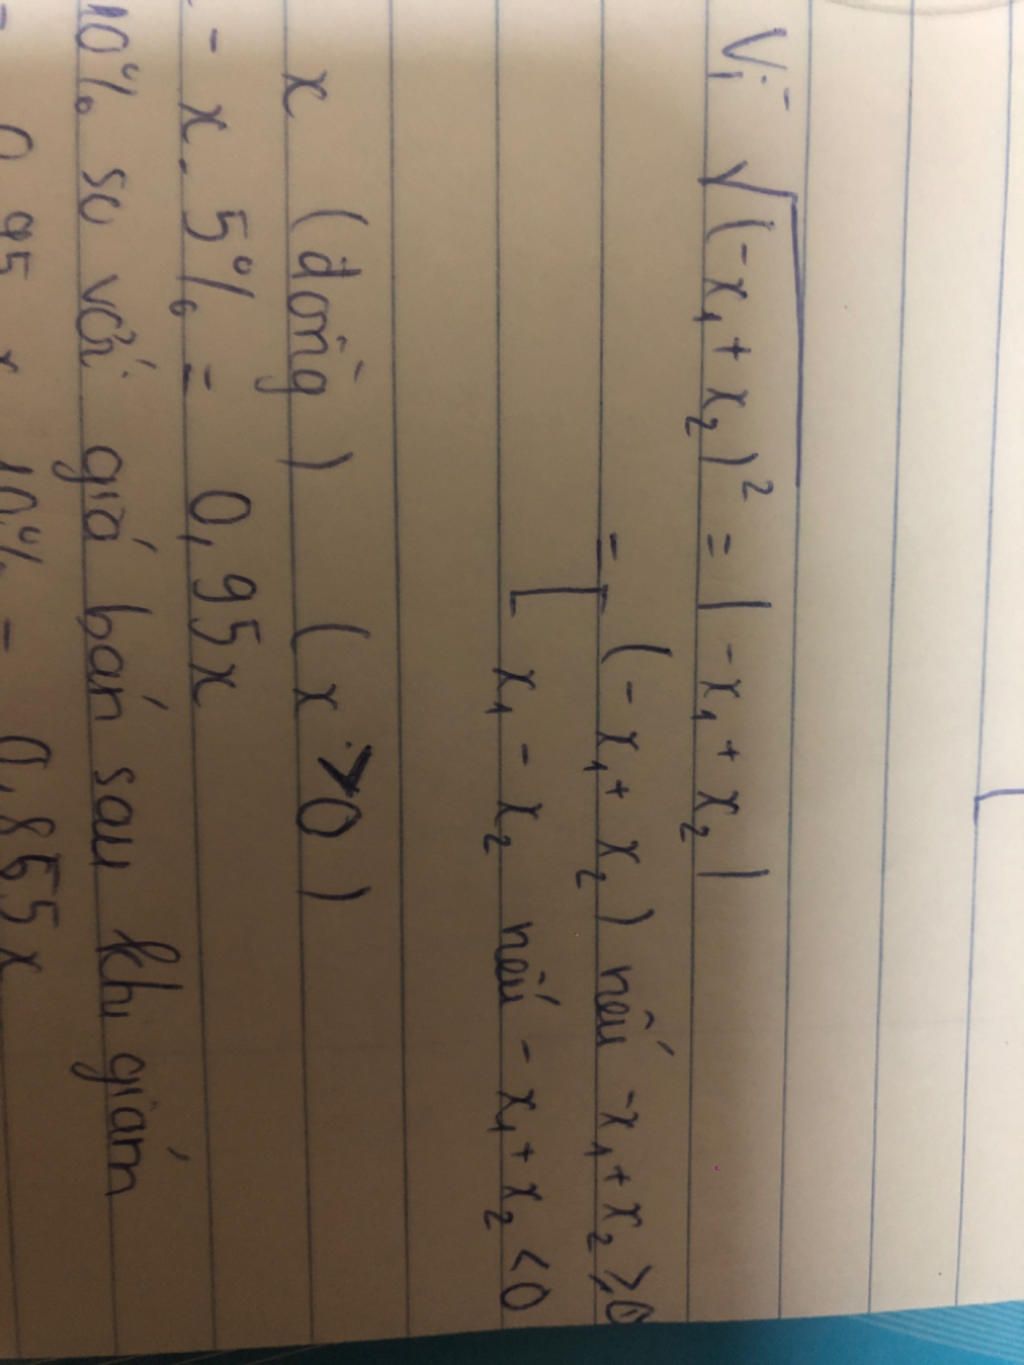 Vì √(-x₁ + x₂)² = |-x₁ + x₂|
= [ (-x₁ + x₂) nếu -x₁ + x₂ ≥ 0
x₁ - x₂ nếu -x₁ + x₂ < 0
x (đồng) (x > 0)
- x. 5% = 0,95x
10% so với giá bán sau khi giảm
0,95 x 10% = 0,855x